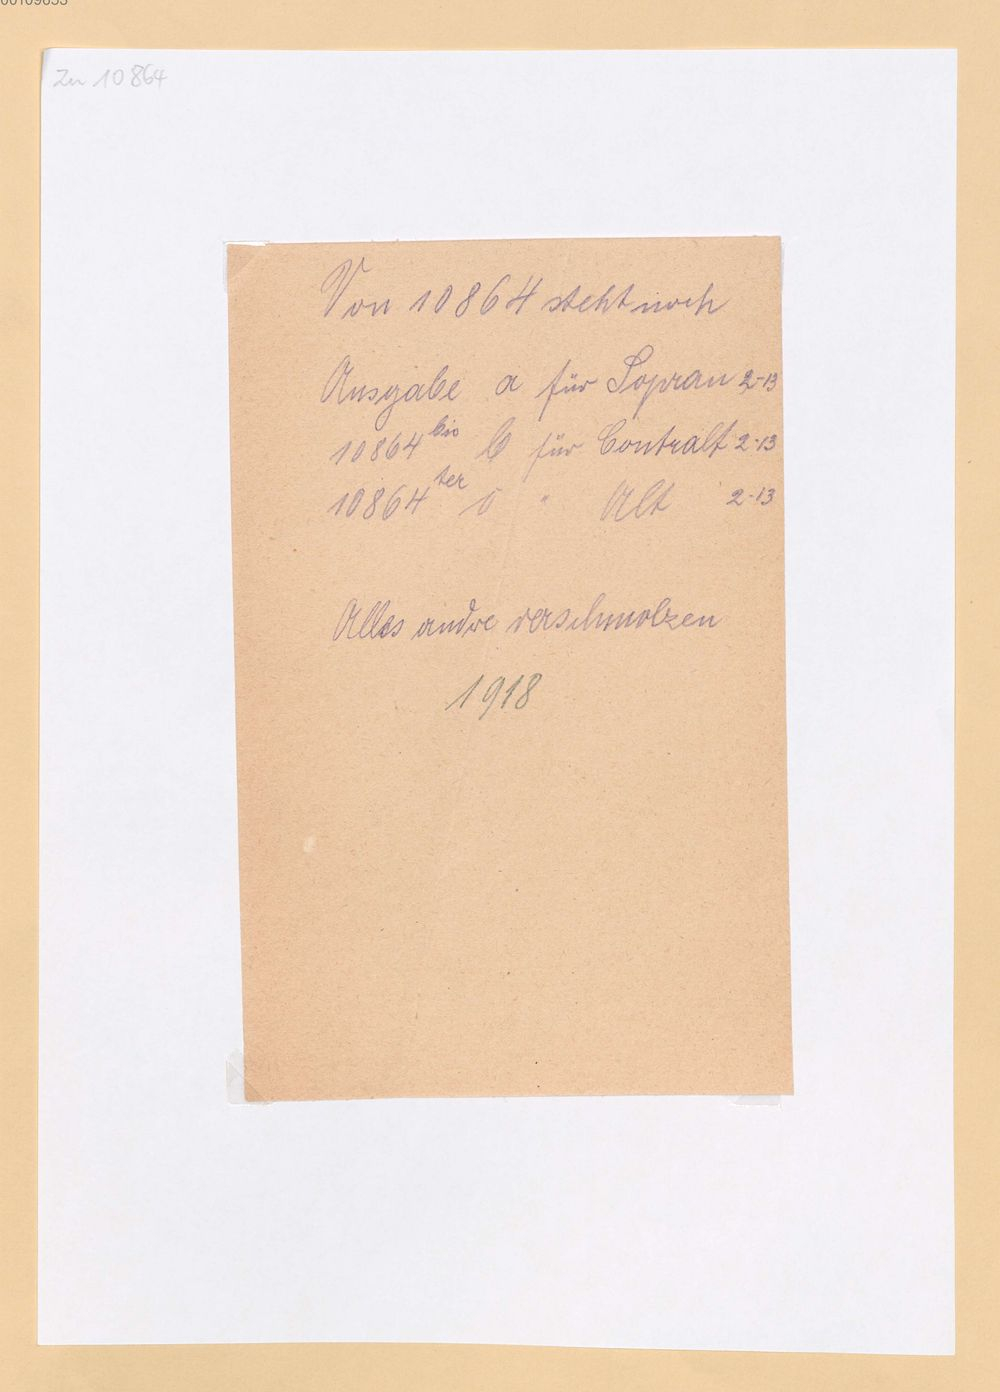 Zu 10864
Von 10864 steht noch
Ausgabe a für Sopran 2-13
10864 bis b für Contralt 2-13
10864 ter c " Alt 2-13
Alles andre verschmolzen
1918